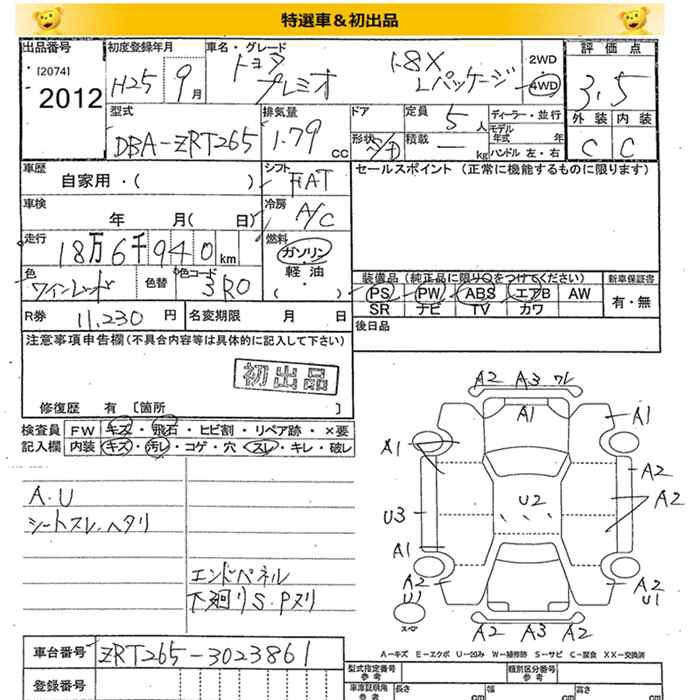 特選車&初出品
出品番号 初度登録年月 車名・グレード 2WD 評価点
[2074] H25 9月 トヨタ 1.8X 4WD 3.5
2012 プレミオ Lパッケージ 外装 内装
型式 排気量 ドア 定員 5人 ディーラー・並行
DBA-ZRT265 1.79cc 形状 S/D 積載 ーkg モデル年式 年 C C
ハンドル 左・右
車歴 シフト セールスポイント (正常に機能するものに限ります)
自家用・( ) FAT
車検 冷房
年 月( 日) A/C
走行 燃料
18万6千940km ガソリン
色 色替 色コード 軽油 装備品(純正品に限り○をつけてください) 新車保証書
ワインレッド 3R0 ( ) PS PW ABS エアB AW 有・無
SR ナビ TV カワ
R券 11,230円 名変期限 月 日 後日品
注意事項申告欄(不具合内容等は具体的に記入して下さい)
初出品
修復歴 有 [箇所 ]
検査員 FW キズ・飛石・ヒビ割・リペア跡・×要
記入欄 内装 キズ・汚レ・コゲ・穴・スレ・キレ・破レ
A.U
シートスレ、ヘタリ
エンドパネル
下廻りS.Pヌリ
A2 A3 ワレ
A1 A1
A1 A2
A2
U3 U2
A1
A2 U1 A2 U1
スペア A2 A3 A2
A-キズ E-エクボ U-凹み W-補修跡 S-サビ C-腐食 XX-交換済
車台番号 ZRT265-3023861
登録番号
型式指定番号 参考 類別区分番号 参考
車庫証明用 参考 長さ cm 幅 cm 高さ cm